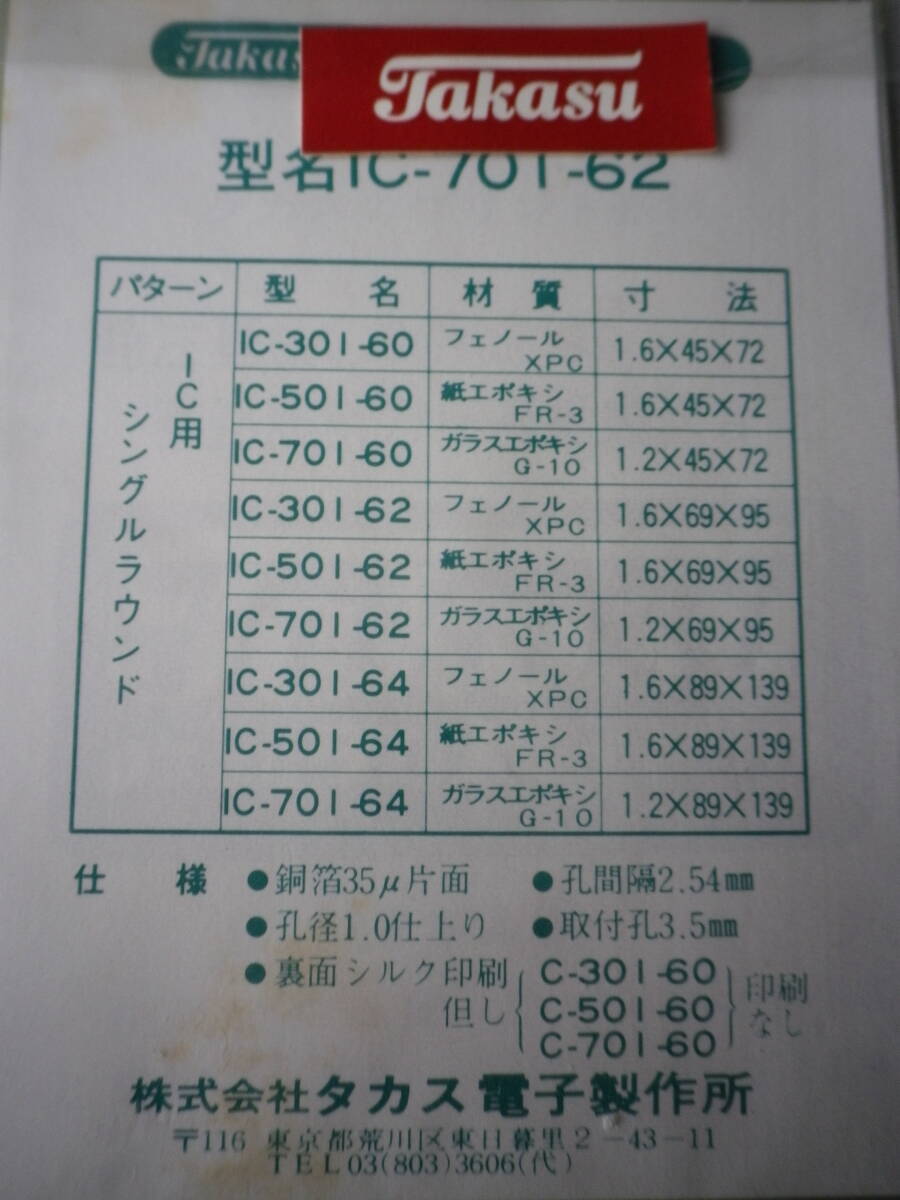 Takasu
Takasu
型名IC-701-62
パターン 型名 材質 寸法
IC用
シングルラウンド
IC-301-60 フェノール XPC 1.6×45×72
IC-501-60 紙エポキシ FR-3 1.6×45×72
IC-701-60 ガラスエポキシ G-10 1.2×45×72
IC-301-62 フェノール XPC 1.6×69×95
IC-501-62 紙エポキシ FR-3 1.6×69×95
IC-701-62 ガラスエポキシ G-10 1.2×69×95
IC-301-64 フェノール XPC 1.6×89×139
IC-501-64 紙エポキシ FR-3 1.6×89×139
IC-701-64 ガラスエポキシ G-10 1.2×89×139
仕様 ●銅箔35μ片面 ●孔間隔2.54mm
●孔径1.0仕上り ●取付孔3.5mm
●裏面シルク印刷
但し C-301-60 C-501-60 C-701-60 印刷なし
株式会社タカス電子製作所
〒116 東京都荒川区東日暮里2-43-11
TEL03(803)3606(代)